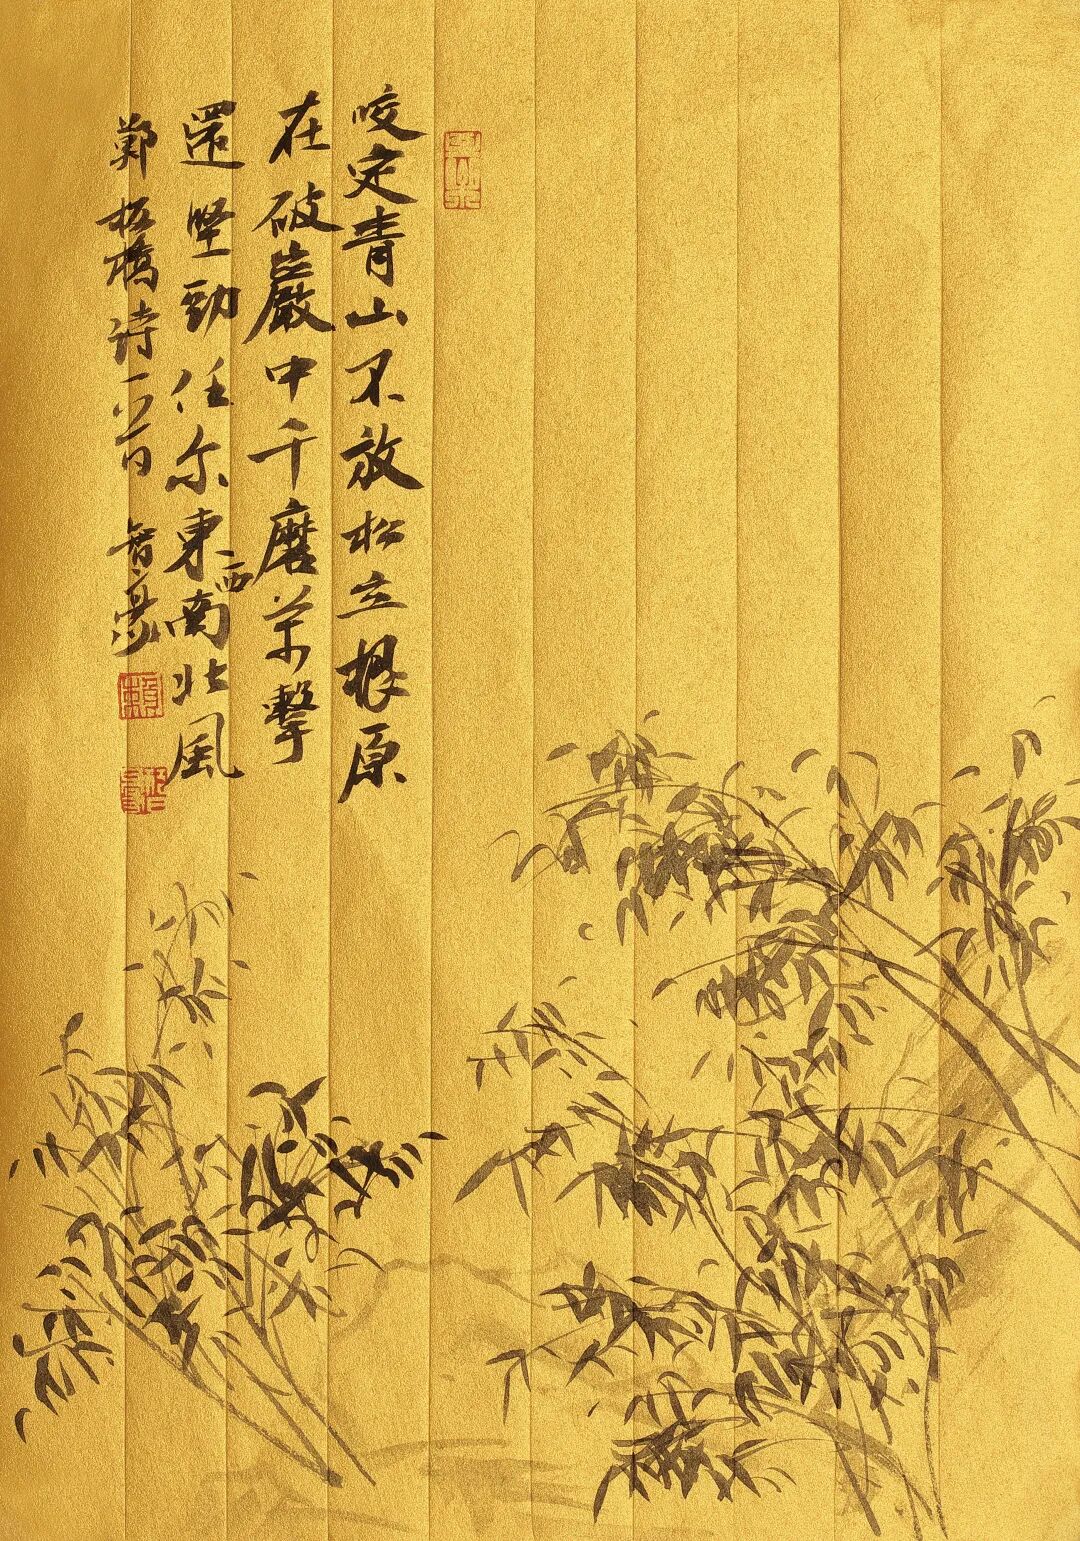 咬定青山不放松立根原
在破巖中千磨萬擊
還坚勁任尔東西南北風
鄭板橋诗一首 智豪
賴